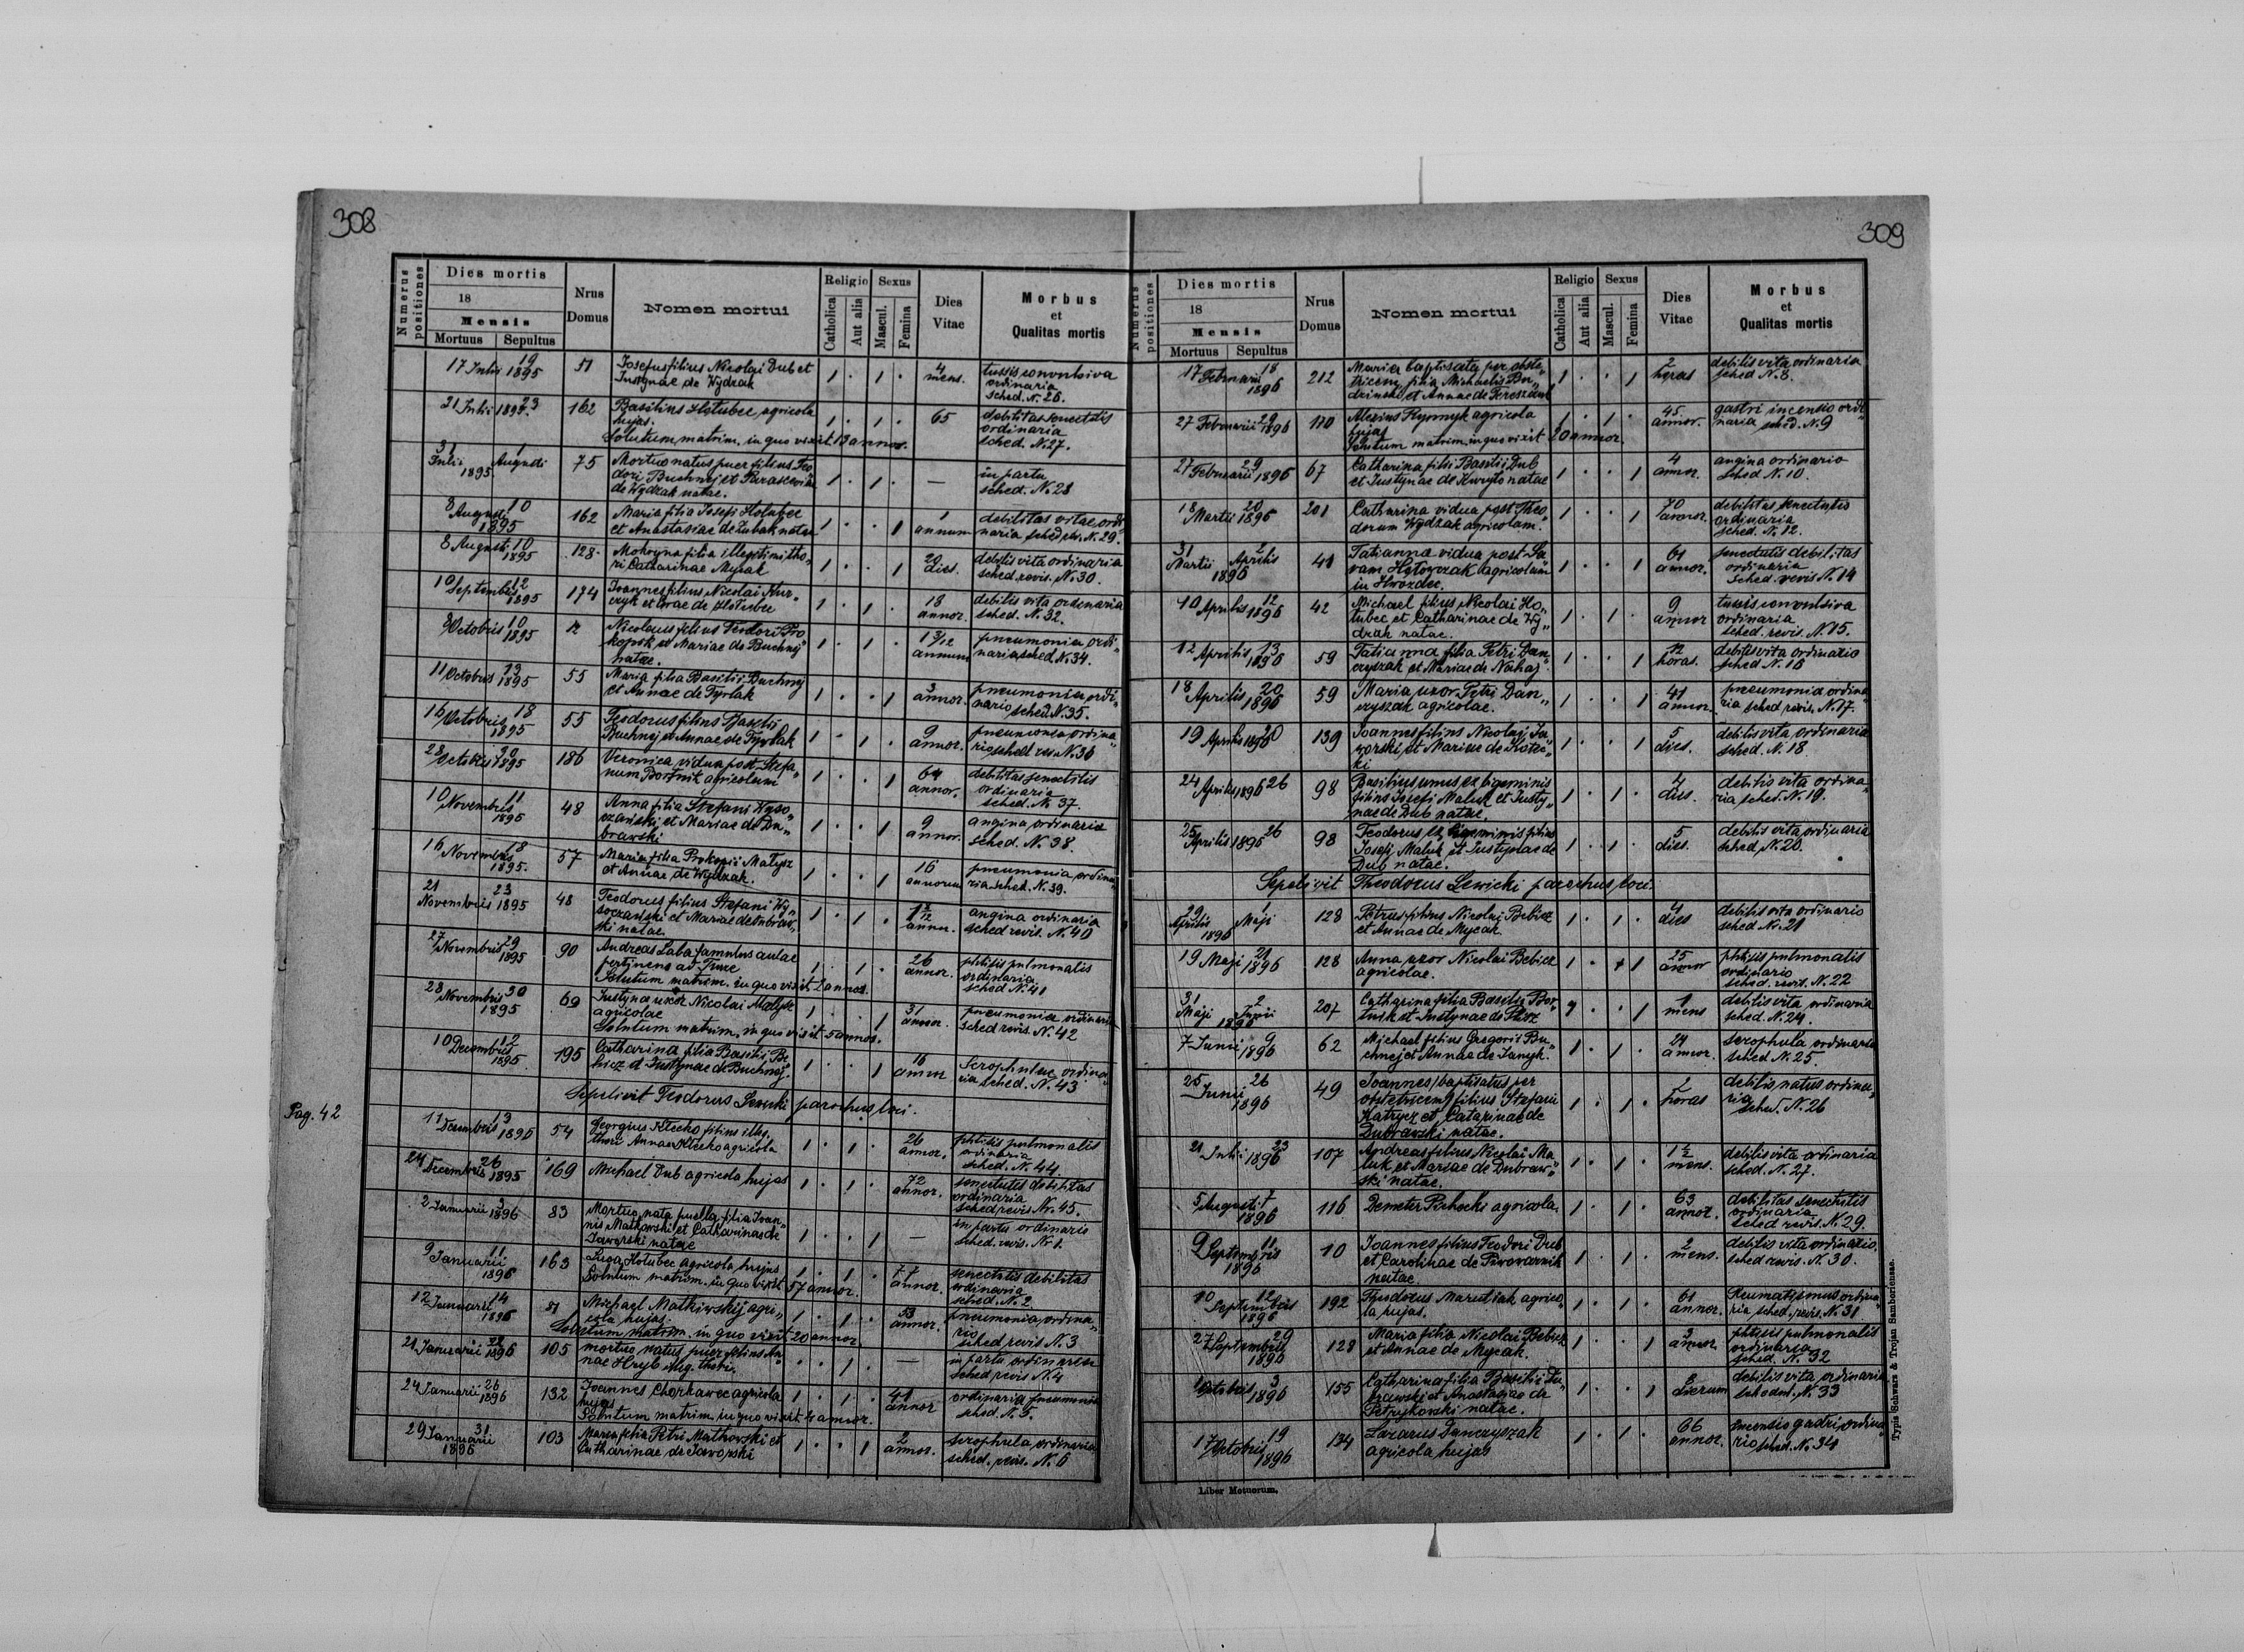 308
Numerus positiones
Dies mortis
18
Mensis
Mortuus Sepultus
Nrus Domus
Nomen mortui
Religio
Catholica
Aut alia
Sexus
Mascul.
Femina
Dies Vitae
Morbus
et
Qualitas mortis
17 Julii 19 1895 51 Josefus filius Nicolai Dub et 1 . 1 . 4 mens. tussis convulsiva
Justynae de Wydzak ordinaria
sched. N. 26.
21 Julii 1895 23 162 Basilius Hołubec, agricola 1 . 1 . 65 debilitas senectutis
hujas. ordinaria
Solutum matrim. in quo vixit 13 annor. sched. N. 27.
31 Julii 1 Augusti 1895 75 Mortuo natus puer filius Teo 1 . 1 . — in partu
dori Buchnij et Parasceviae sched. N. 28
de Wydzak natae.
8 Augusti 10 1895 162 Maria filia Josefi Hołubec 1 . . 1 1 annum debilitas vitae ordi
et Anastasiae de Żubak natae naria sched. N. 29.
8 Augusti 10 1895 128 Mokryna filia illegitimi tho 1 . . 1 20 dies. debilis vita ordinaria
ri Catharinae Mycak sched. revis. N. 30.
10 Septembris 12 1895 174 Joannes filius Nicolai Kur 1 . 1 . 18 annor. debilis vita ordinaria
czyk et Hołubec sched. N. 32.
Octobris 10 1895 12 Nicolaus filius Teodori Pro 1 . 1 . annum pneumonia ordi
kopik et Mariae de Buchnij naria sched N. 34.
natae.
11 Octobris 13 1895 55 Maria filia Basilii Buchnij 1 . . 1 3 annor. pneumonia ordi
et Annae de Tyrlak nario sched. N. 35.
16 Octobris 18 1895 55 Teodorus filius Basilii 1 . 1 . 9 annor. pneumonia ordina
Buchnij et Annae de Tyrlak rio sched. rev. N. 36
28 Octobris 30 1895 186 Veronica vidua post Stefa 1 . . 1 64 annor. debilitas senectutis
num Bortnik agricolam ordinaria
sched. N. 37.
10 Novembris 11 1895 48 Anna filia Stefani Wyso 1 . . 1 9 annor. angina ordinaria
czański et Mariae de Du sched. N. 38.
brawski
16 Novembris 18 1895. 57 Maria filia Prokopii Małysz 1 . . 1 16 annorum pneumonia ordina
et Annae de Wydzak. ria sched. N. 39.
21 Novembris 23 1895 48 Teodorus filius Stefani Wy 1 . 1 . annu. angina ordinaria
soczański et Mariae de Dubraw sched revis. N. 40
ski natae.
27 Novembris 29 1895 90 Andreas Laba famulus aulae 1 . 1 . 26 annor. phtisis pulmonalis
pertinens ad Turze ordinaria
Solutum matrim. in quo vixit 2 annos. sched N. 41
28 Novembris 30 1895 69 Justyna uxor Nicolai Małysz 1 . . 1 31 annor. pneumonia ordinaria
agricolae sched revis. N. 42
Solutum matrim. in quo vixit 5 annos.
10 Decembris 12 1895. 195 Catharina filia Basilii Be 1 . . 1 16 annor Scrophulae ordina
bicz et Justynae de Buchnij. ria sched. N. 43
Sepelivit Teodorus Lewicki parochus loci.
Pag. 42
11 Decembris 13 1895 54 Georgius Klecko filius illeg. 1 . 1 . 26 annor. phtisis pulmonalis
thori Annae Klecko agricola ordinaria
sched. N. 44.
24 Decembris 26 1895 169 Michael Dub agricola hujas 1 . 1 . 72 annor. senectutis debilitas
ordinaria
sched revis Nr. 45.
2 Januarii 3 1896 83 Mortuo nata puella filia Joan 1 . . 1 — in partu ordinario
nis Matkowski et Catharinae de sched. revis. N. 1.
Jaworski natae
9 Januarii 11 1896 163 Hołubec agricola hujas 1 . 1 . 77 annor. senectutis debilitas
Solutum matrim. in quo vixit 57 annor. ordinaria
sched. N. 2
12 Januarii 14 1896 51 Michael Matkiwskij agri 1 . 1 . 53 annor. pneumonia ordina
cola hujas. rio
Solutum matrim. in quo vixit 20 annor. sched revis N. 3
21 Januarii 22 1896 105 mortuo natus puer filius An . . 1 . — in partu ordin
nae Hryb illeg. thori. sched revis N. 4
24 Januarii 26 1896 132 Joannes Chorkawec agricola 1 . 1 . 41 annor ordinaria pneumonia
hujas sched. N. 5.
Solutum matrim. in quo vixit 4 annor.
29 Januarii 31 1896 103 Maria filia Petri Matkowski et 1 . . 1 2 annor. scrophula ordinaria
Catharinae de Jaworski sched. revis. N. 6
309
Numerus positiones
Dies mortis
18
Mensis
Mortuus Sepultus
Nrus Domus
Nomen mortui
Religio
Catholica
Aut alia
Sexus
Mascul.
Femina
Dies Vitae
Morbus
et
Qualitas mortis
17 Februarii 18 1896 212 Maria (baptisata per obste 1 . . 1 2 horas debilis vita ordinaria
tricem) filia Michaelis Bu sched N. 8.
dzinski et Annae de Fereszcuk
27 Februarii 29 1896 170 Alexius Hrynyk agricola 1 . 1 . 45 annor. gastri incensio ordi
hujas naria sched. N. 9
Solutum matrim. in quo vixit 20 annor.
27 Februarii 29 1896 67 Catharina filii Basilii Dub 1 . . 1 4 annor. angina ordinario
et Justynae de Kuryło natae sched N. 10.
18 Martii 20 1896 201 Catharina vidua post Theo 1 . . 1 70 annor. debilitas senectutis
dorum Wydzak agricolam. ordinaria
sched. N. 12.
31 Martii 2 Aprilis 1896 41 Tatianna vidua post Sa 1 . . 1 61 annor. senectutis debilitas
vam Hołowczak agricolam ordinaria
in Hwozdec sched. revis N. 14
10 Aprilis 12 1896 42 Michael filius Nicolai Ho 1 . 1 . 9 annor tussis convulsiva
łubec et Catharinae de Wy ordinaria
drak natae. sched. revis. N. 15.
12 Aprilis 13 1896 59 Tatianna filia Petri Dan 1 . . 1 12 horas. debilis vita ordinario
czyszak et Mariae de Nahaj sched N. 16
18 Aprilis 20 1896 59 Maria uxor Petri Dan 1 . . 1 41 annor. pneumonia ordina
czyszak agricolae. ria sched revis. N. 17.
19 Aprilis 20 1896 139 Joannes filius Nicolai Ja . 1 5 dies. debilis vita ordinaria
worski et Mariae de Kotec sched. N. 18
ki
24 Aprilis 1896 26 98 Basilius unus ex bigeminis 1 . 1 . 4 dies. debilis vita ordina
filius Josefi Maluk et Justy ria sched. N. 19.
nae de Dub natae.
25 Aprilis 1896 26 98 Teodorus ex bigeminis filius 1 . 1 . 5 dies. debilis vita ordinaria
Josefi Maluk et Justynae de sched. N. 20.
Dub natae.
Sepelivit Theodorus Lewicki parochus loci.
29 Aprilis 1 Maji 1896 128 Petrus filius Nicolai Bebicz 1 . 1 . 4 dies debilis vita ordinario
et Annae de Mycak sched N. 21
19 Maji 21 1896 128 Anna uxor Nicolai Bebicz 1 . . 1 25 annor phtisis pulmonalis
agricolae. ordinario
sched. revis. N. 22
31 Maji 2 Junii 1896 207 Catharina filia Basilii Bor . . 1 1 mens debilis vita ordinaria
tnik et Justynae de sched. N. 24.
7 Junii 9 1896 62 Michael filius Gregorii Bu 1 . 1 . 24 annor. scrophula ordinaria
chnij et Annae de Janyk. sched N. 25.
25 Junii 26 1896 49 Joannes (baptisatus per 1 . 1 . 2 horas debilis natus ordina
obstetricem) filius Stefani ria
Katrycz et Catarinae de sched. N. 26
Dubrawski natae.
21 Julii 23 1896 107 Andreas filius Nicolai Ma 1 . 1 . 1½ mens. debilis vita ordinaria
luk et Mariae de Dubraw sched. N. 27.
ski natae.
5 Augusti 7 1896 116 Demeter agricola. 1 . 1 . 63 annor. debilitas senectutis
ordinaria
sched revis. N. 29.
9 Septembris 11 1896 10 Joannes filius Teodori Dub 1 . 1 . 2 mens. debilis vita ordinario
et Carolinae de Piwowarnik sched revis. N. 30.
natae.
10 Septembris 12 1896 192 Theodorus Maruliak agrico 1 . 1 . 61 annor. Reumatismus ordina
la hujas. ria sched. revis. N. 31
27 Septembris 29 1896 128 Maria filia Nicolai Bebicz 1 . . 1 3 annor. phtisis pulmonalis
et Annae de Mycak. ordinaria
sched. N. 32
1 Octobris 3 1896 155 Catharina filia Basilii Du 1 . . 1 8 dierum debilis vita ordinaria
brawski et Anastasiae de sched. N. 33
Petrykowski natae.
17 Octobris 19 1896 134 Lazarus Danczyszak 1 . 1 . 66 annor. incensio gastri ordina
agricola hujas rio sched. N. 34
Liber Motuorum.
Typis Schwarz & Trojan Samboriensae.